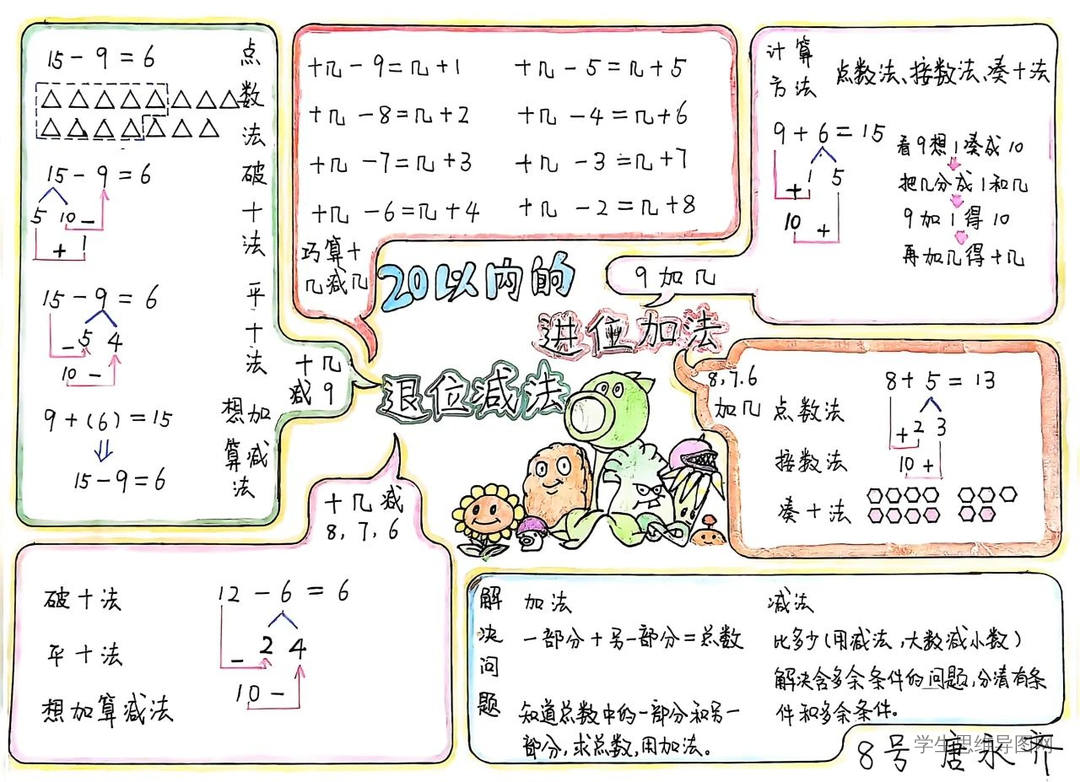 20以内的
进位加法
退位减法
15-9=6
点数法
15-9=6
5 10-
+ 1
破十法
15-9=6
- 5 4
10-
平十法
9+(6)=15
⇓
15-9=6
想加算减法
十几减9
十几-9=几+1
十几-5=几+5
十几-8=几+2
十几-4=几+6
十几-7=几+3
十几-3=几+7
十几-6=几+4
十几-2=几+8
巧算十几减几
计算方法
点数法、接数法、凑十法
9+6=15
+ 1 5
10 +
看9想1凑成10
把几分成1和几
9加1得10
再加几得十几
9加几
8,7.6
加几
点数法
接数法
凑十法
8+5=13
+2 3
10+
十几减
8,7,6
破十法
平十法
想加算减法
12-6=6
- 2 4
10-
解决问题
加法
一部分+另一部分=总数
知道总数中的一部分和另一
部分,求总数,用加法。
减法
比多少(用减法,大数减小数)
解决含多余条件的问题,分清有条
件和多余条件。
8号 唐水齐
学生思维导图网